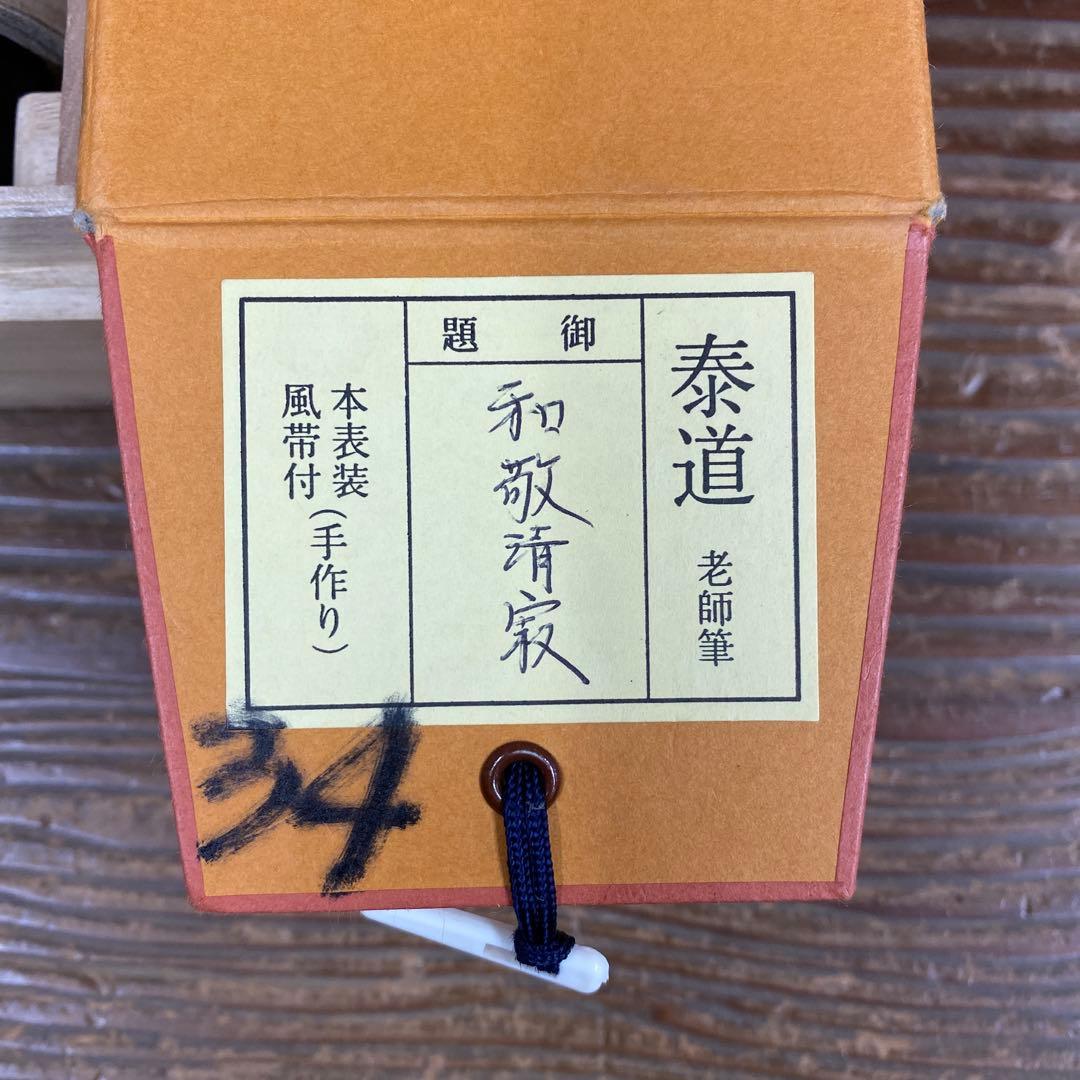 泰道 老師筆
御題
和敬清寂
本表装(手作り)
風帯付
34